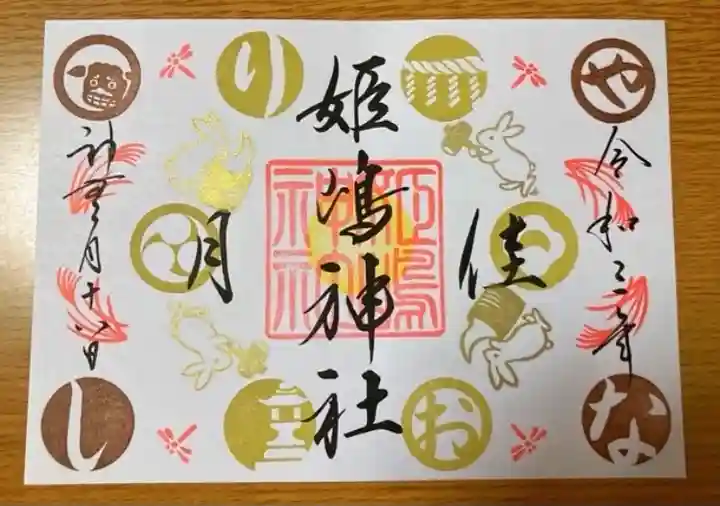 令和三年
佳月
姫嶋神社
神無月十八日
や
り
な
お
し
姫嶋神社